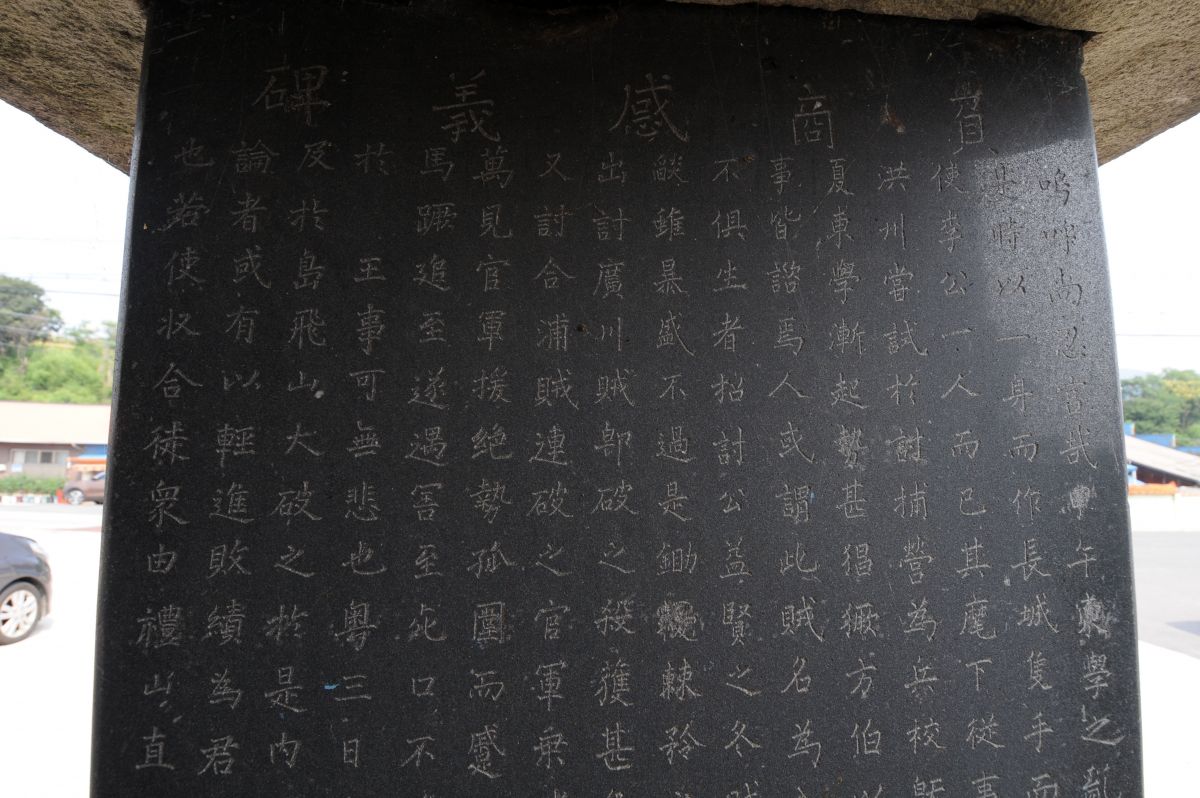 負商感義碑
嗚呼尚忍言哉甲午東學之亂
是時以一身而作長城隻手而
使李公一人而已其麾下從事
洪州嘗試於討捕營為兵校
夏東學漸起勢甚猖獗方伯以
事皆諮焉人或謂此賊名為
不俱生者招討公益賢之冬賊
燄雖暴盛不過是鋤耰棘矜
出討廣川賊即破之殺獲甚
又討合浦賊連破之官軍乗
萬見官軍援绝勢孤圍而蹙
馬蹶追至遂遇害至死口不
於王事可無悲也粵三日
及於島飛山大破之於是内
論者或有以輕進敗績為君
也若使収合徒衆由禮山直